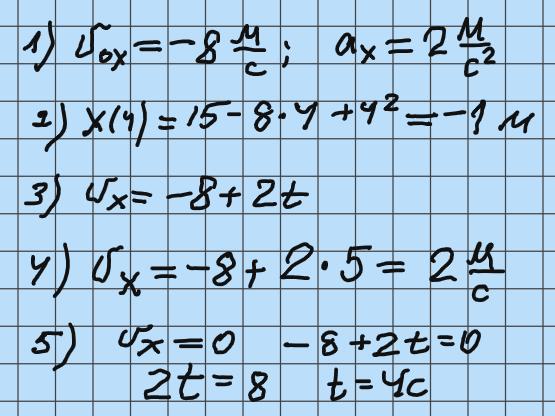 1) υ₀ₓ = -8 м/с ; aₓ = 2 м/с²
2) x(4) = 15 - 8·4 + 4² = -1 м
3) υₓ = -8 + 2t
4) υₓ = -8 + 2·5 = 2 м/с
5) υₓ = 0 -8 + 2t = 0
2t = 8 t = 4с